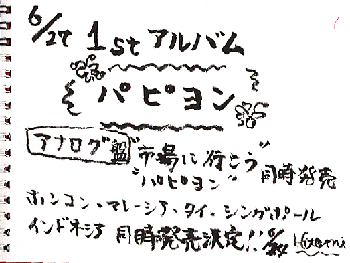 6/27 1st アルバム
パピヨン
アナログ盤 "市場に行こう"
"パピヨン" 同時発売
ホンコン・マレーシア・タイ・シンガポール
インドネシア 同時発売決定!!